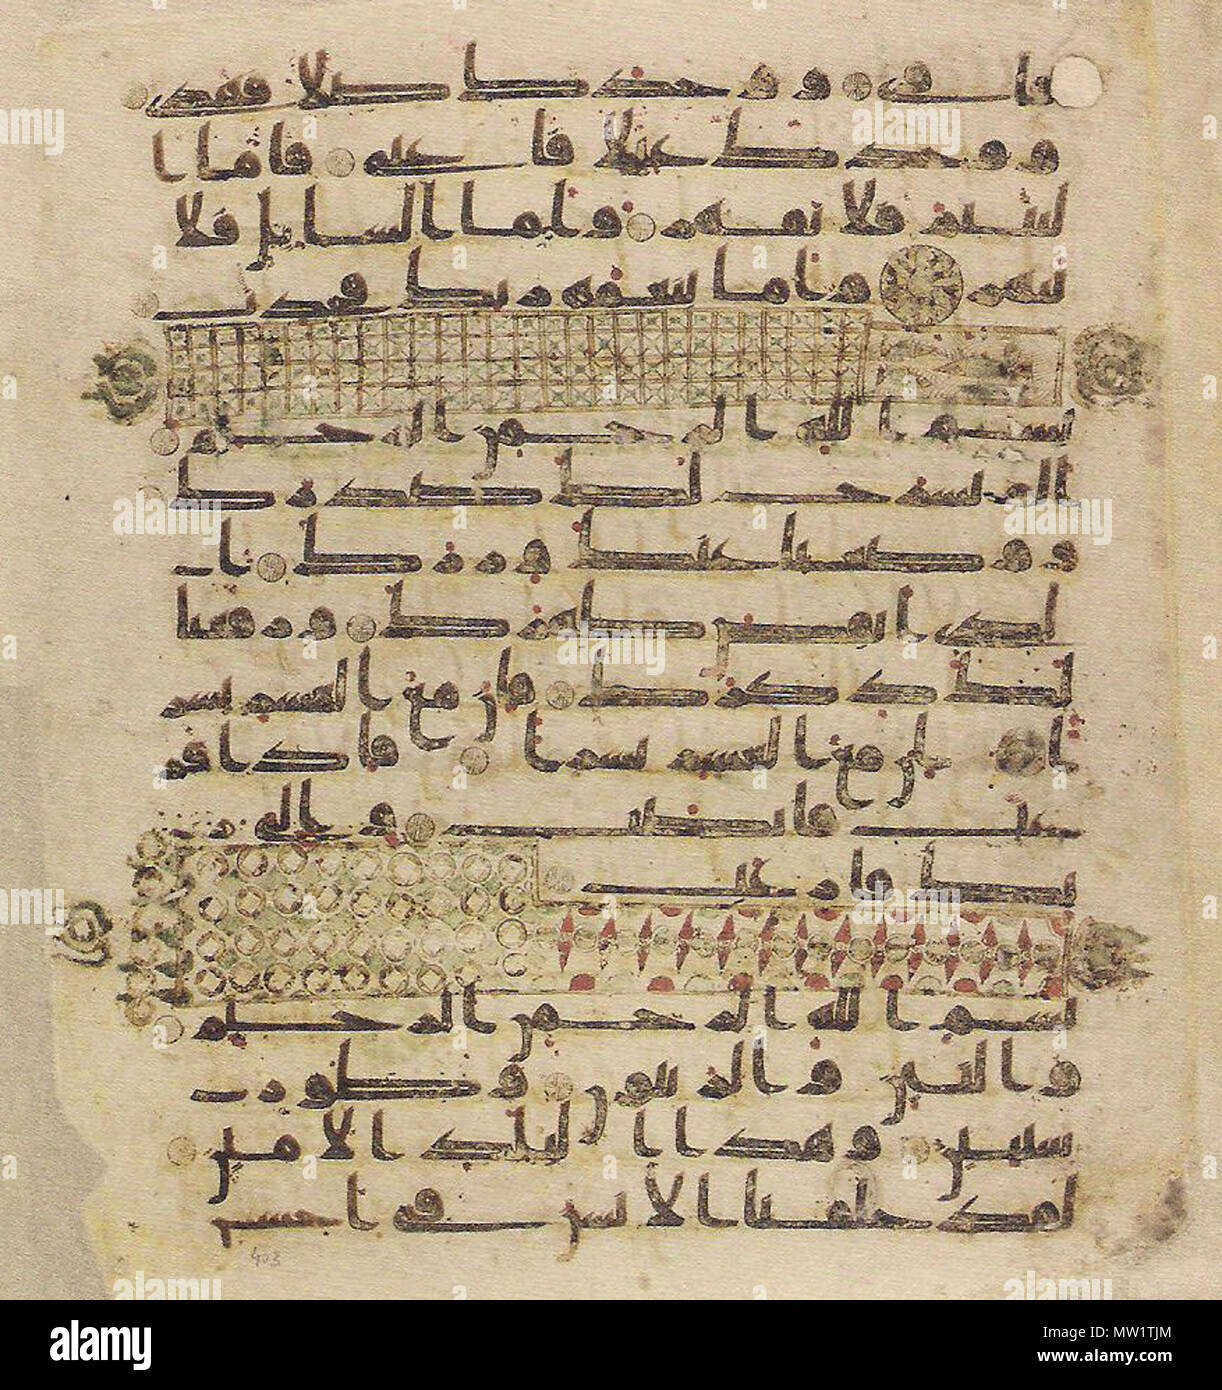 فاوى ووجدك ضالا فهدى
ووجدك عيلا فاغنى فاما ا
ليتيم فلا تقهر واما السايل فلا
تنهر واما بنعمة ربك فحدث
بسم الله الرحمن الرحيم
الم نشرح لك صدرك
ووضعنا عنك وزرك ا
لذى انقض ظهرك ورفعنا
لك ذكرك فان مع العسر يسر
ا ان مع العسر يسرا فاذا فر
غت فانصب والى ر
بك فارغب
بسم الله الرحمن الرحيم
والتين والزيتون وطور
سينين وهذا البلد الامين
لقد خلقنا الانسن فى احسن
403
alamy
Image ID: MW1TJM
www.alamy.com